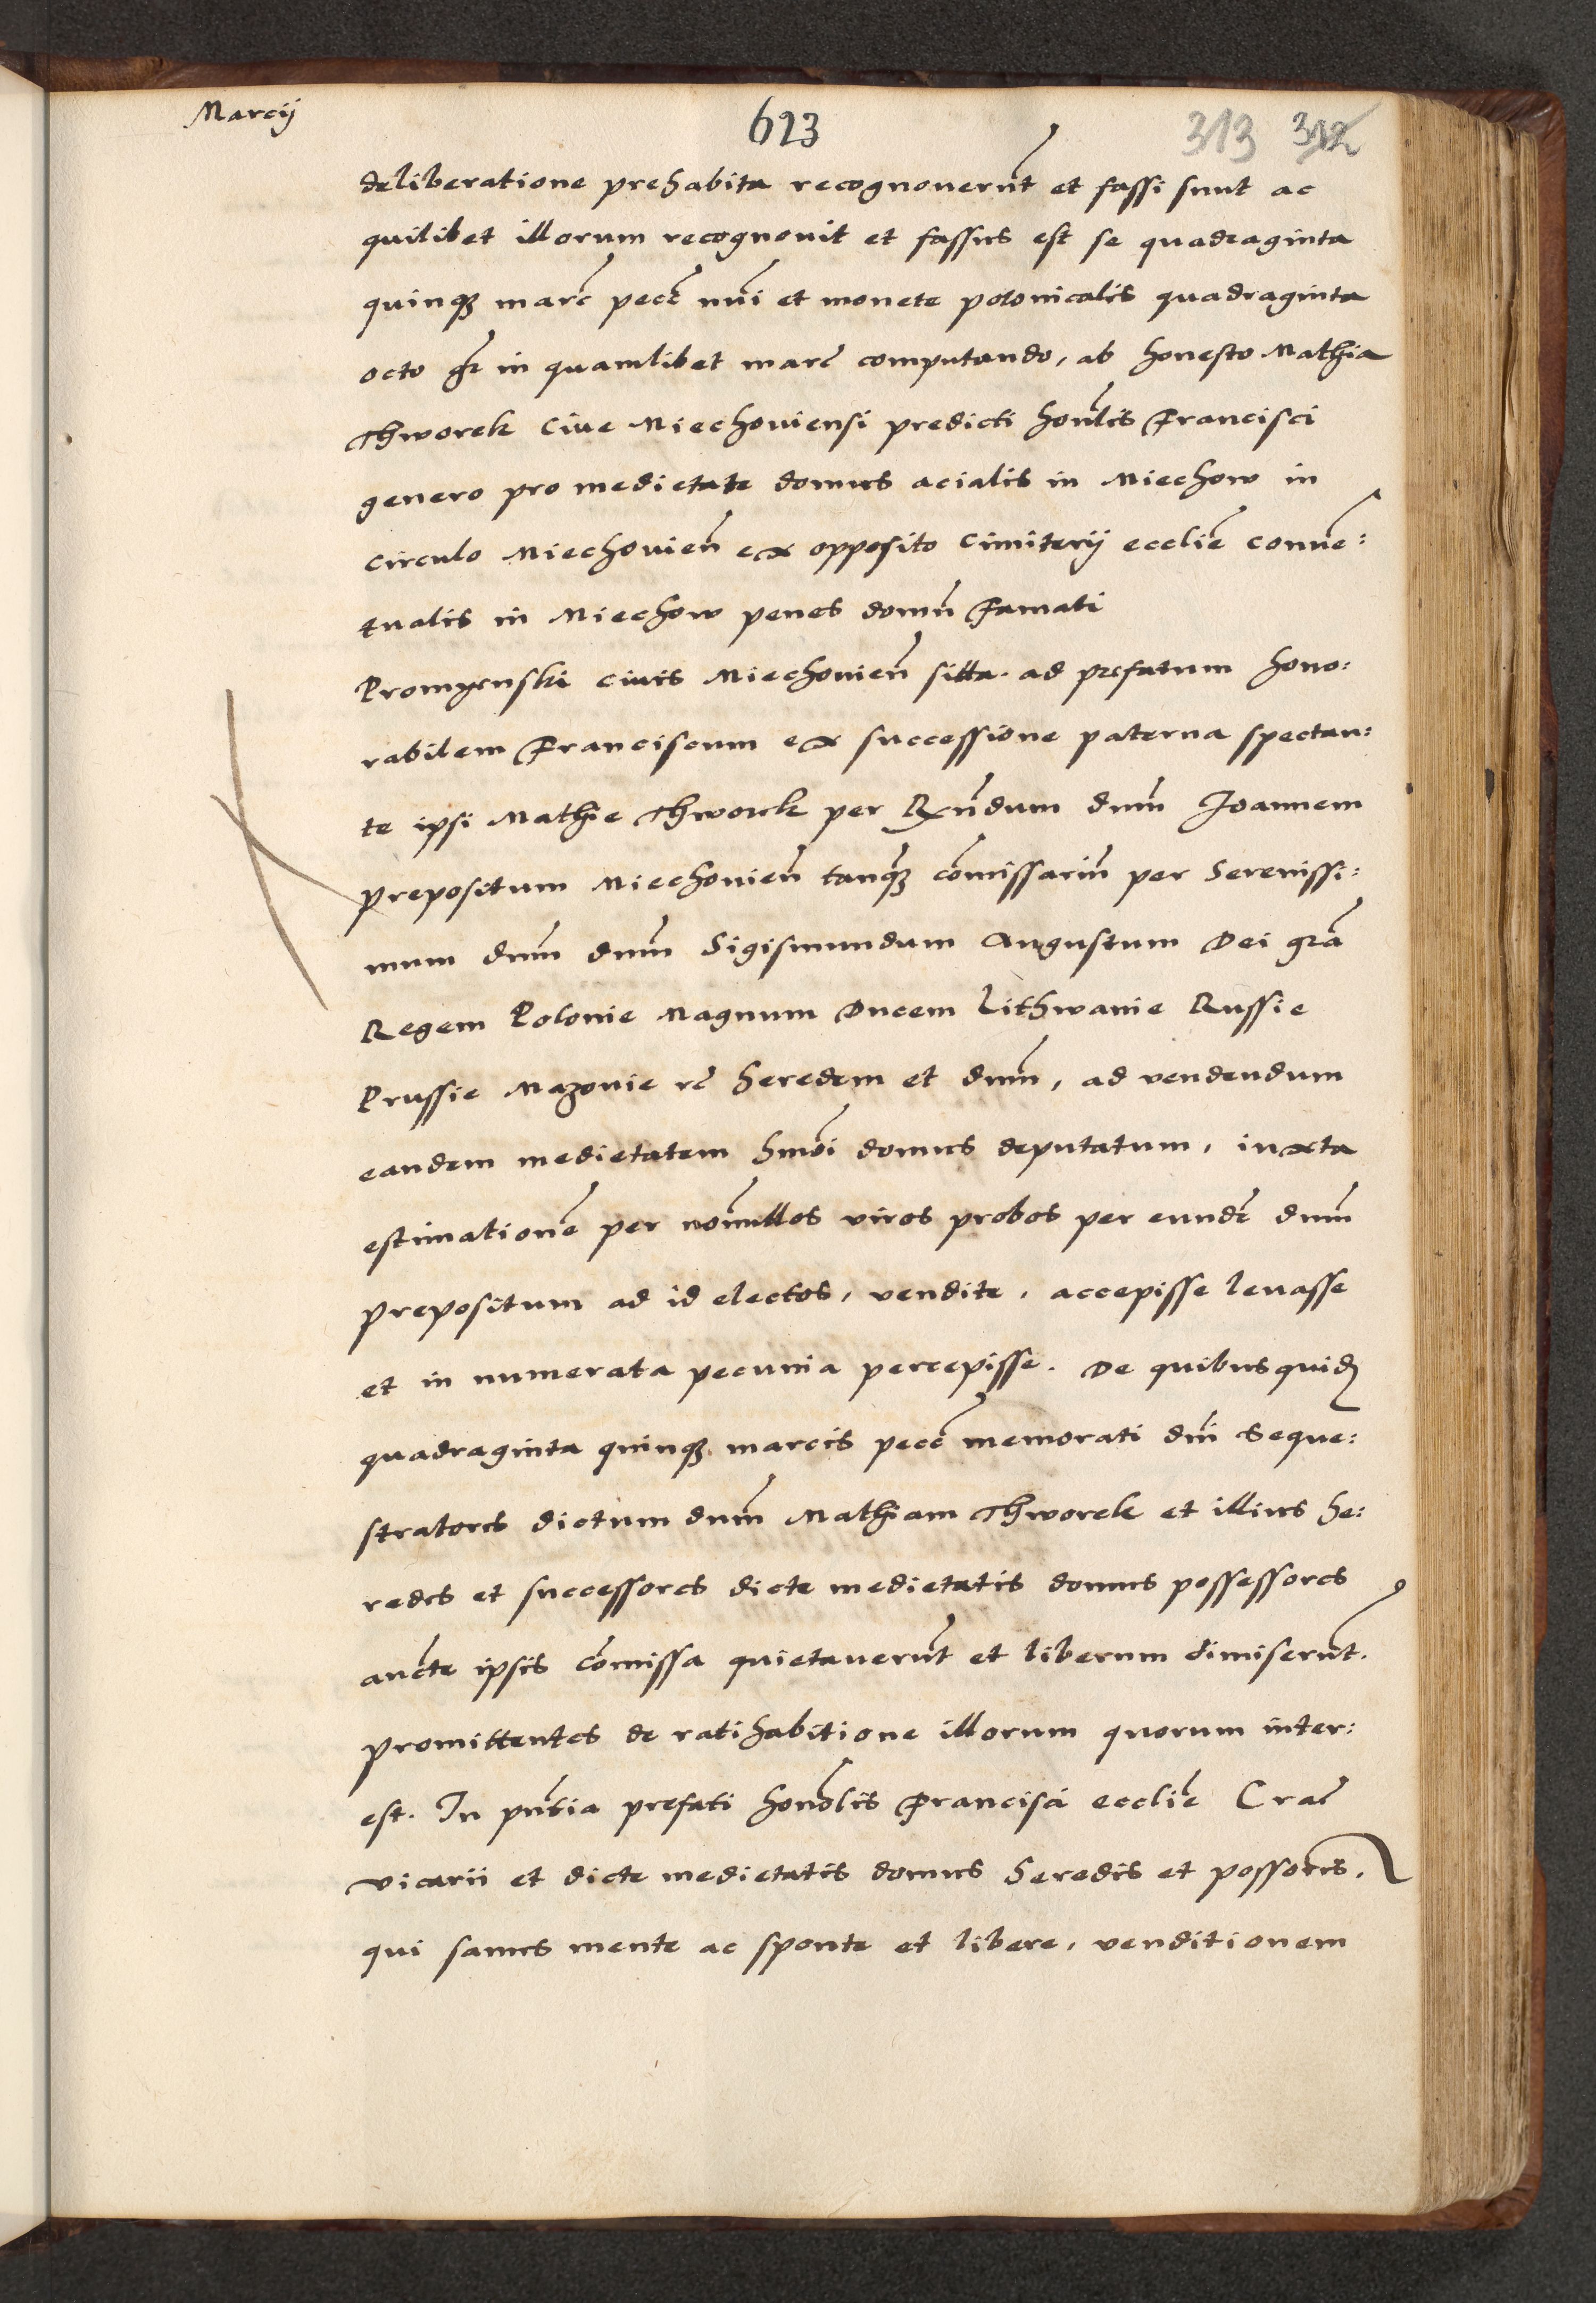 Marcij
623
313 312
deliberatione prehabita recognoverūt et fassi sunt ac
quilibet illorum recognovit et fassus est se quadraginta
quinqȝ marc̄ pecc̄ nūi et monete polonicalis quadraginta
octo gr̄ in quamlibet marc̄ computando, ab honesto Mathia
Thworek Cive Miechoviensi predicti honlis̄ Francisci
genero pro medietate domus acialis in Miechow in
circulo Miechovien̄ ex opposito Cimiterij ecclie̅ conve̅:
tualis in Miechow penes domu̅ Famati
Promyenski civis Miechovien̄ sitta. ad prefatum hono:
rabilem Franciscum ex successione paterna spectan:
te ipsi Mathie Thworek per Rx̄ndum dnm̄ Joannem
prepositum Miechovien̄ tanqȝ̄ com̄issariu̅ per Serenissi:
mum dnm̄ dnm̄ Sigismundum Augustum Dei gra̅
Regem Polonie Magnum Ducem Lithwanie Russie
Prussie Mazovie rc̄ heredem et dnm̄, ad vendendum
eandem medietatem hmōi domus deputatum, iuxta
estimatione̅ per non̄ullos viros probos per eundē dnm̄
prepositum ad id electos, vendite, accepisse levasse
et in numerata pecunia percepisse. De quibusquidȝ
quadraginta quinqȝ marcis pecc̄ memorati dnī Seque:
stratores dictum dnm̄ Mathiam Thworek et illius he:
redes et successores dicte medietatis domus possessores
auc̄te ipsis com̄issa quietaverūt et liberum dimiserūt.
promittentes de ratihabitione illorum quorum inter:
est. In pn̄tia prefati honōlis Francisci ecclie̅ Crac̄
vicarii et dicte medietatis domus heredis et possoris̄.
qui sanus mente ac sponte et libere, venditionem